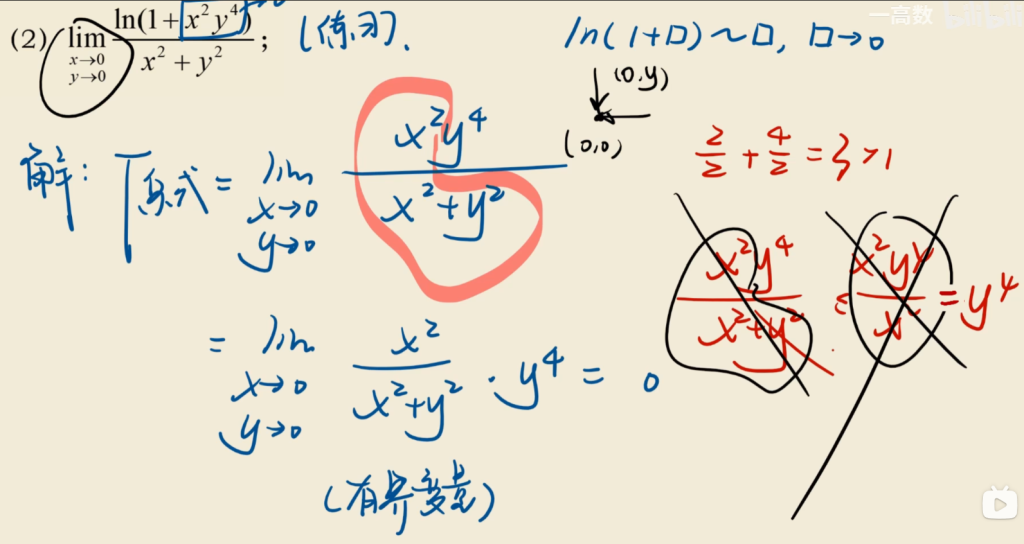 一高数
(2) lim x→0 y→0 ln(1+x²y⁴) / x²+y² ; (练习). ln(1+□)~□, □→0
(0,y)
(0,0)
解: 原式 = lim x→0 y→0 x²y⁴ / x²+y²
2/2 + 4/2 = 3 > 1
x²y⁴ / x²+y² ≤ x²y⁴ / x² = y⁴
= lim x→0 y→0 x² / x²+y² · y⁴ = 0
(有界变量)